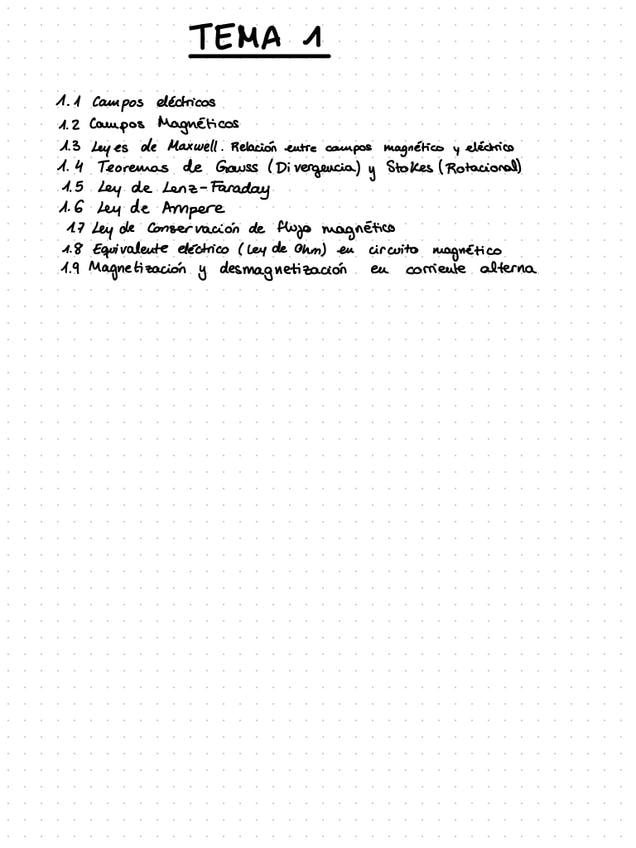 TEMA 1
1.1 Campos eléctricos
1.2 Campos Magnéticos
1.3 Leyes de Maxwell. Relación entre campos magnético y eléctrico
1.4 Teoremas de Gauss (Divergencia) y Stokes (Rotacional)
1.5 Ley de Lenz-Faraday
1.6 Ley de Ampere
1.7 Ley de Conservación de flujo magnético
1.8 Equivalente eléctrico (Ley de Ohm) en circuito magnético
1.9 Magnetización y desmagnetización en corriente alterna